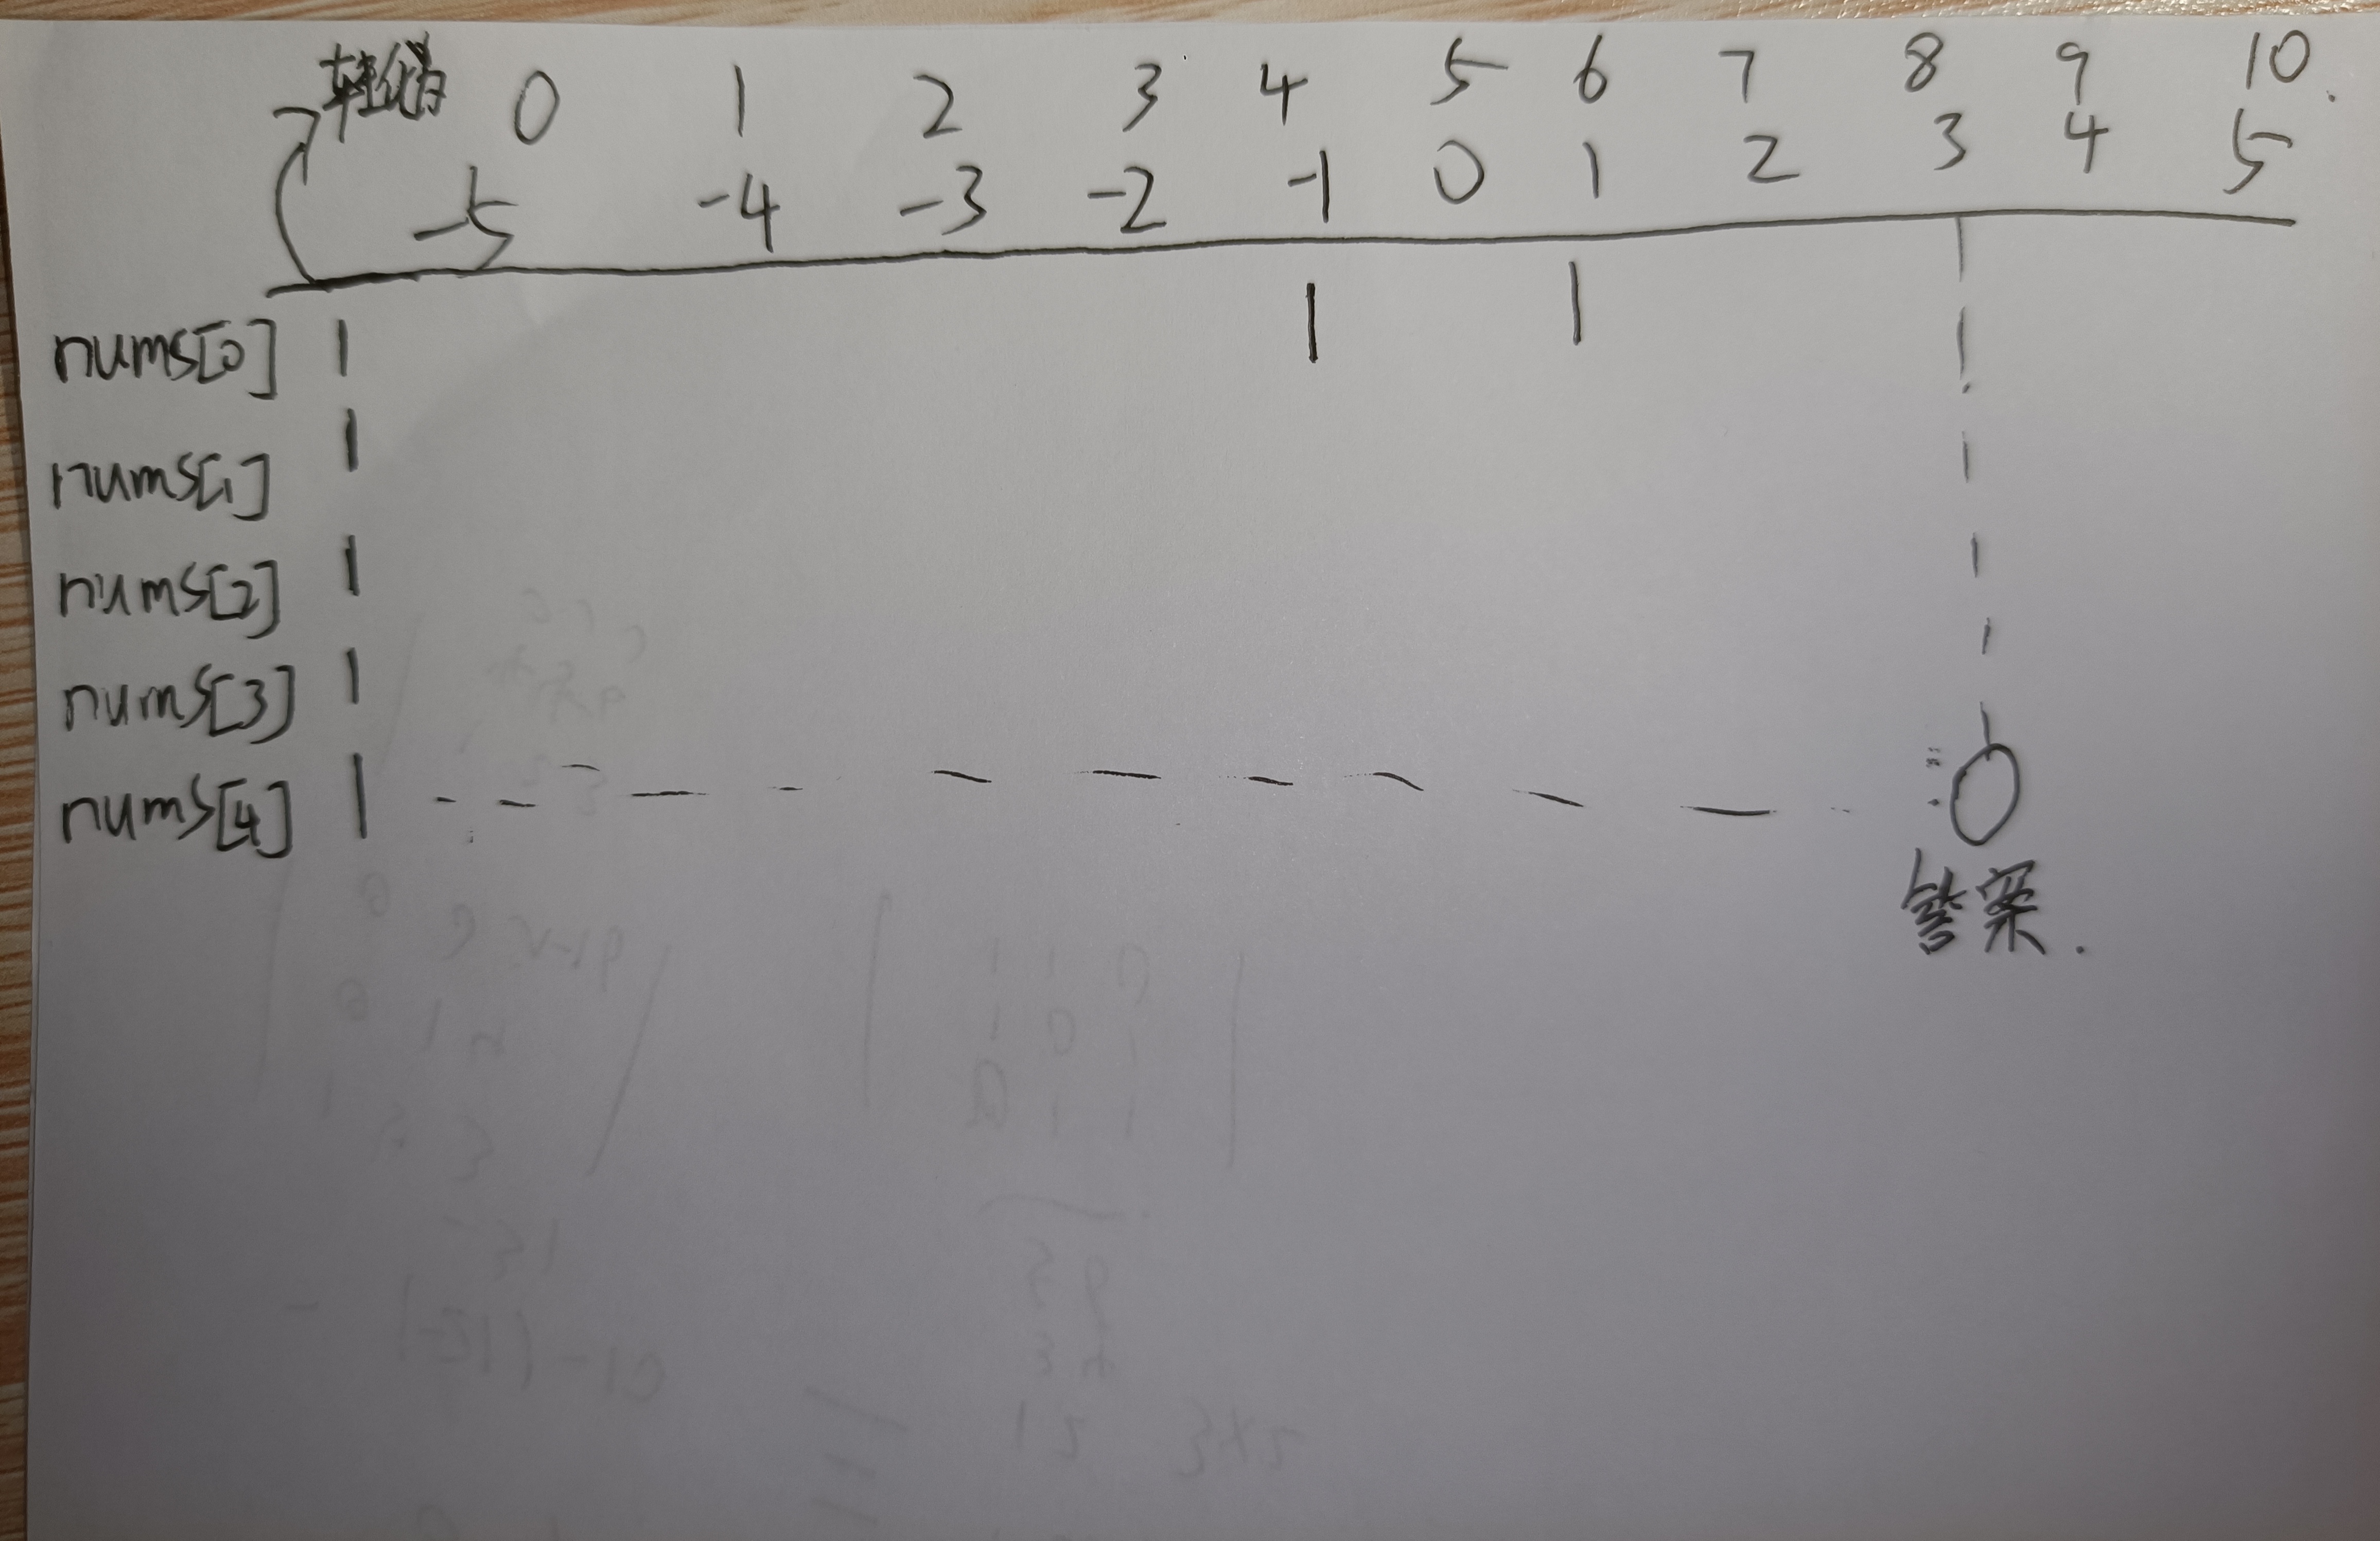 转化为 0 1 2 3 4 5 6 7 8 9 10.
-5 -4 -3 -2 -1 0 1 2 3 4 5
nums[0] 1 1 1
nums[1] 1
nums[2] 1
nums[3] 1
nums[4] 1
答案.